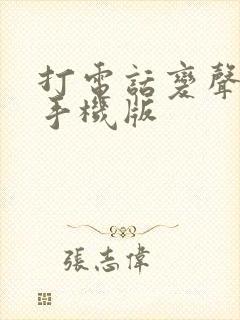 打電話變聲
手機版
張志偉